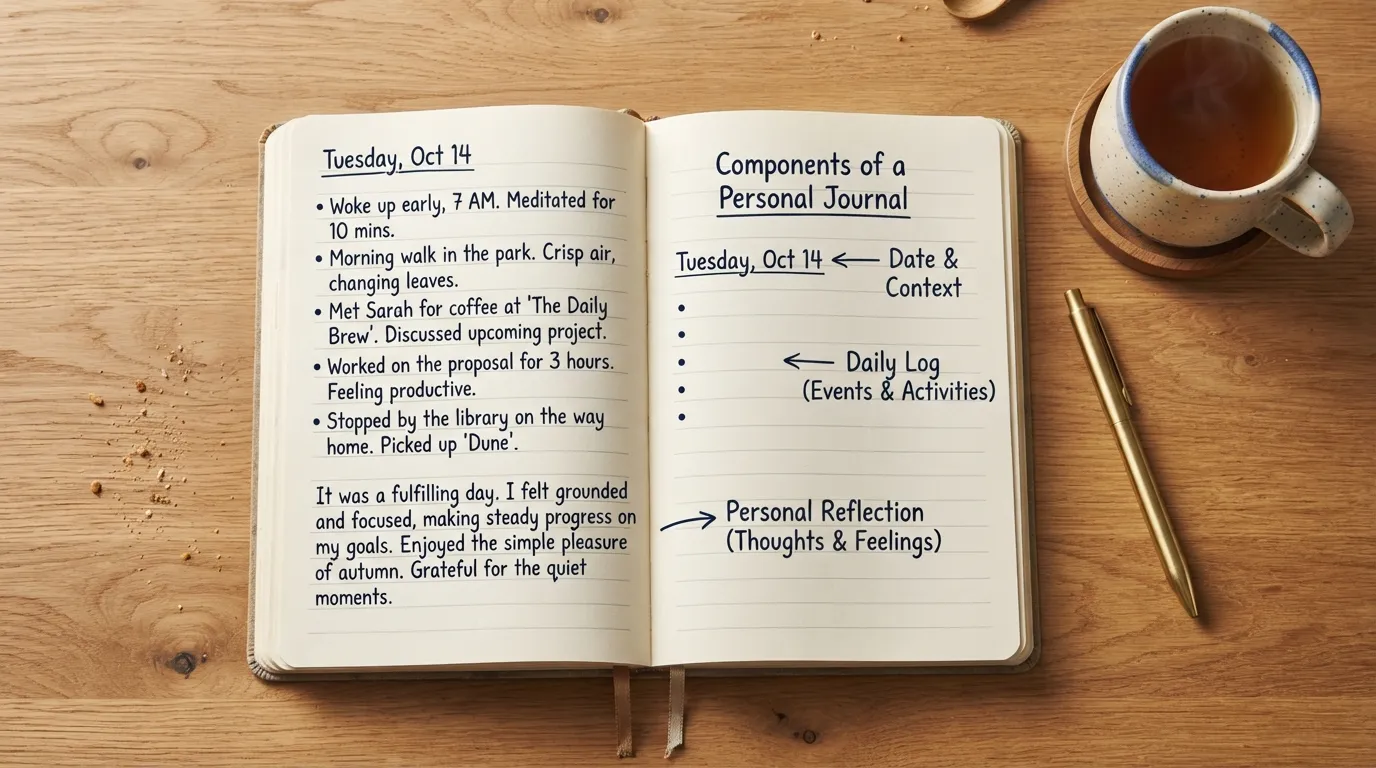 Tuesday, Oct 14
• Woke up early, 7 AM. Meditated for
10 mins.
• Morning walk in the park. Crisp air,
changing leaves.
• Met Sarah for coffee at 'The Daily
Brew'. Discussed upcoming project.
• Worked on the proposal for 3 hours.
Feeling productive.
• Stopped by the library on the way
home. Picked up 'Dune'.
It was a fulfilling day. I felt grounded
and focused, making steady progress on
my goals. Enjoyed the simple pleasure
of autumn. Grateful for the quiet
moments.
Components of a
Personal Journal
Tuesday, Oct 14 ← Date &
Context
•
•
• ← Daily Log
(Events & Activities)
•
•
→ Personal Reflection
(Thoughts & Feelings)